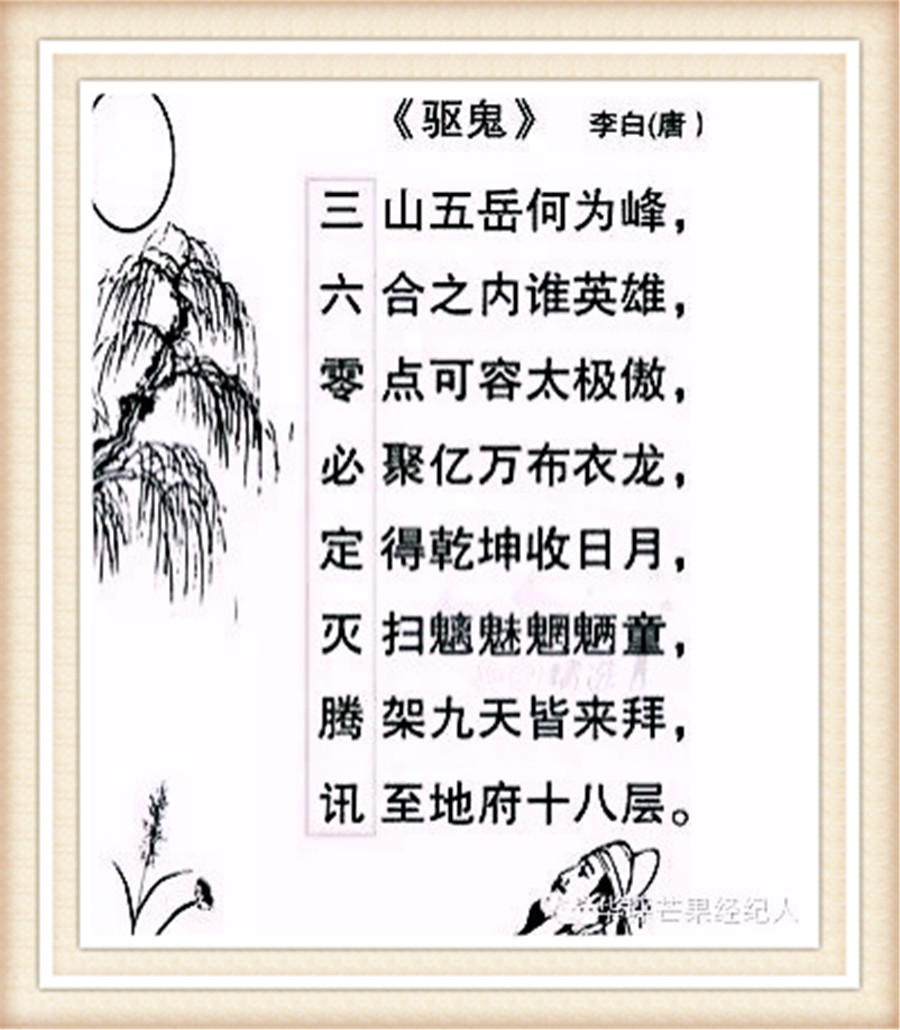 《驱鬼》 李白(唐)
三山五岳何为峰，
六合之内谁英雄，
零点可容太极傲，
必聚亿万布衣龙，
定得乾坤收日月，
灭扫魑魅魍魉童，
腾架九天皆来拜，
讯至地府十八层。
华坪芒果经纪人